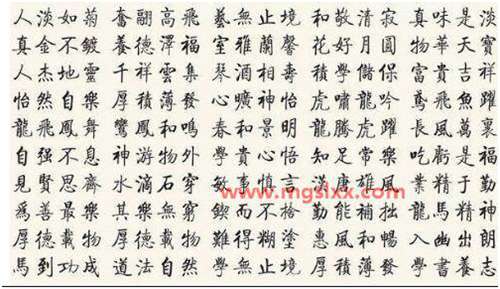 人淡如菊 奮翮高飛 藝無止境 和敬清寂 真味是淡
真金不鍍 養德澤福 室雅蘭馨 花好月圓 物華天寶
人杰地靈 千祥雲集 琴酒相壽 積學儲保 富貴吉祥
怡然自樂 厚積薄發 心曠神怡 虎嘯龍吟 鳶飛魚躍
龍飛鳳舞 鸞鳳和鳴 春和景明 龍騰虎躍 長風萬裏
自强不息 神游物外 學貴心悟 知足常樂 吃虧是福
見賢思齊 水滴石穿 敏事慎言 滿唐雄風 業精于勤
爲善最樂 其樂無窮 鍥而不捨 勤能補拙 龍馬精神
厚德載物 厚德載物 難得糊塗 惠風和暢 入幽出朗
馬到功成 道法自然 學無止境 厚積薄發 學書養志
www.mgslxx.com